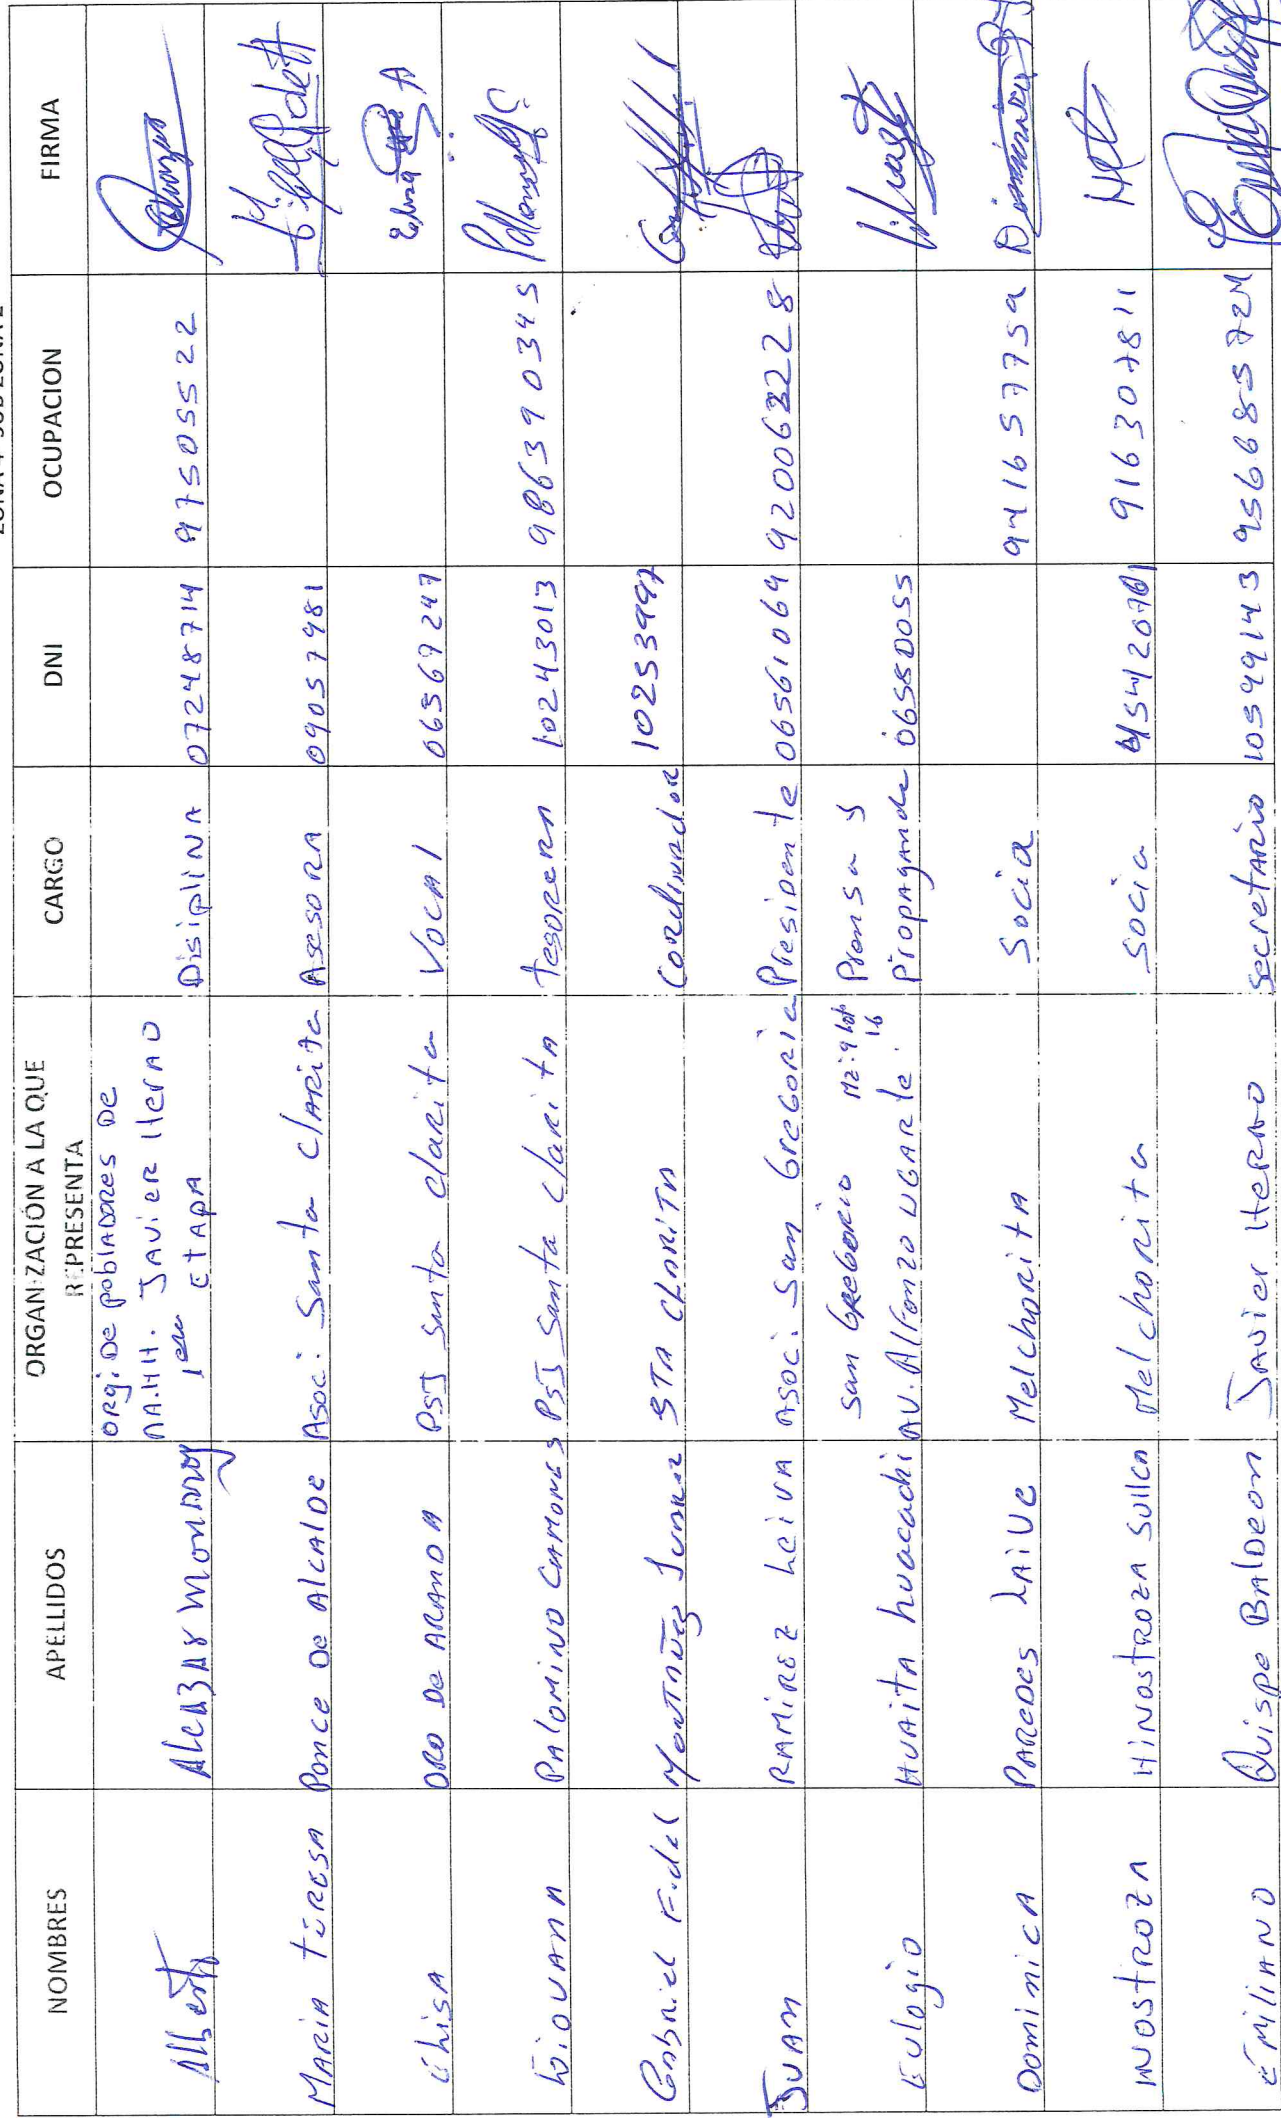 NOMBRES APELLIDOS ORGANIZACIÓN A LA QUE REPRESENTA CARGO DNI OCUPACION FIRMA
Alberto Alcazar Monrroy ORgi De poblADORES De
AA.HH. JAViER HerAD
1era EtApA Disiplina 07248714 97505522
MARIA TeRESA Ponce De AlcAlDe Asoci. Santa ClARita AsesoRA 09057981
ElisA ORO De ARANDA PSJ Santa clarita VocAl 06567247 Elisa A
GiovAnnA PAlomiNO CAmones PSJ Santa ClaritA tesoreRA 10243013 986390345
Gabriel Fidel Montañez Juarez STA CLARITA Cordinador 10253997
JUAN RAMiREZ LeivA Asoci. San GreGoria Presidente 06561064 920063228
Eulogio HUAitA huacachi San GreGorio Mz:9 lot 16
AV. Alfonzo UGARte Prensa y
propaganda 06550055
DominicA PAReDes LAiVe MelchoritA Socia 941657759
INOStROZA HiNOstROZA Sullca Melchorita Socia 45420701 916307811
EMiliANO Quispe BAlDeon JAvier HeRAO SecretARio 10599143 956685724